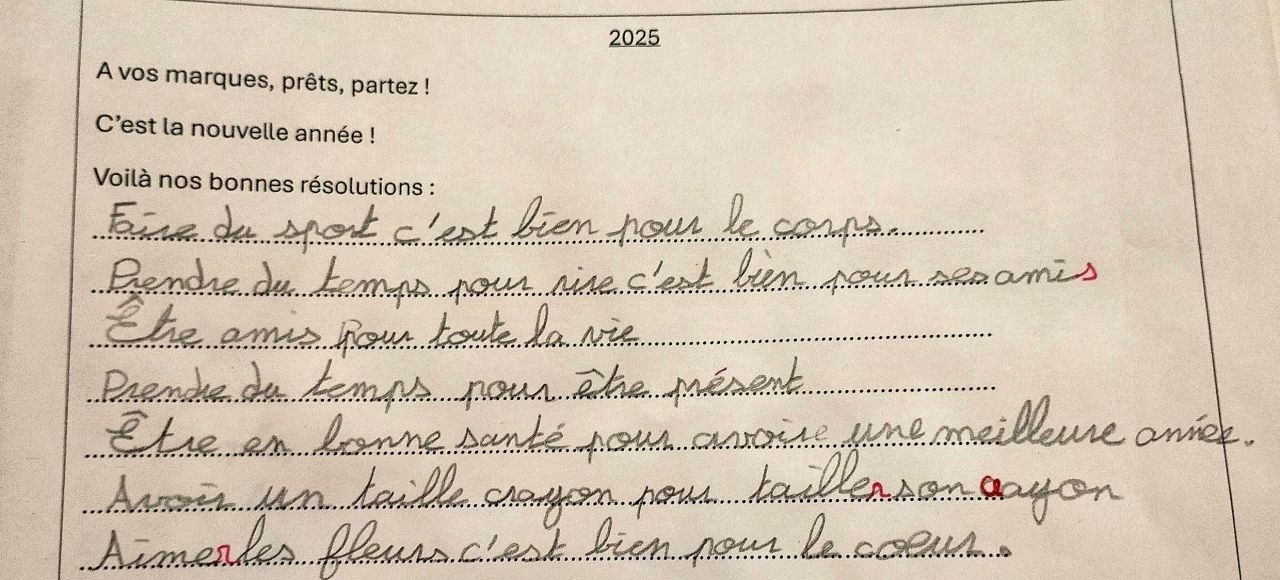 2025
A vos marques, prêts, partez !
C'est la nouvelle année !
Voilà nos bonnes résolutions :
Faire du sport c'est bien pour le corps.
Prendre du temps pour rire c'est bien pour ses amis
Être amis pour toute la vie
Prendre du temps pour être présent
Être en bonne santé pour avoire une meilleure année.
Avoir un taille crayon pour tailler son crayon
Aimer les fleurs c'est bien pour le coeur.